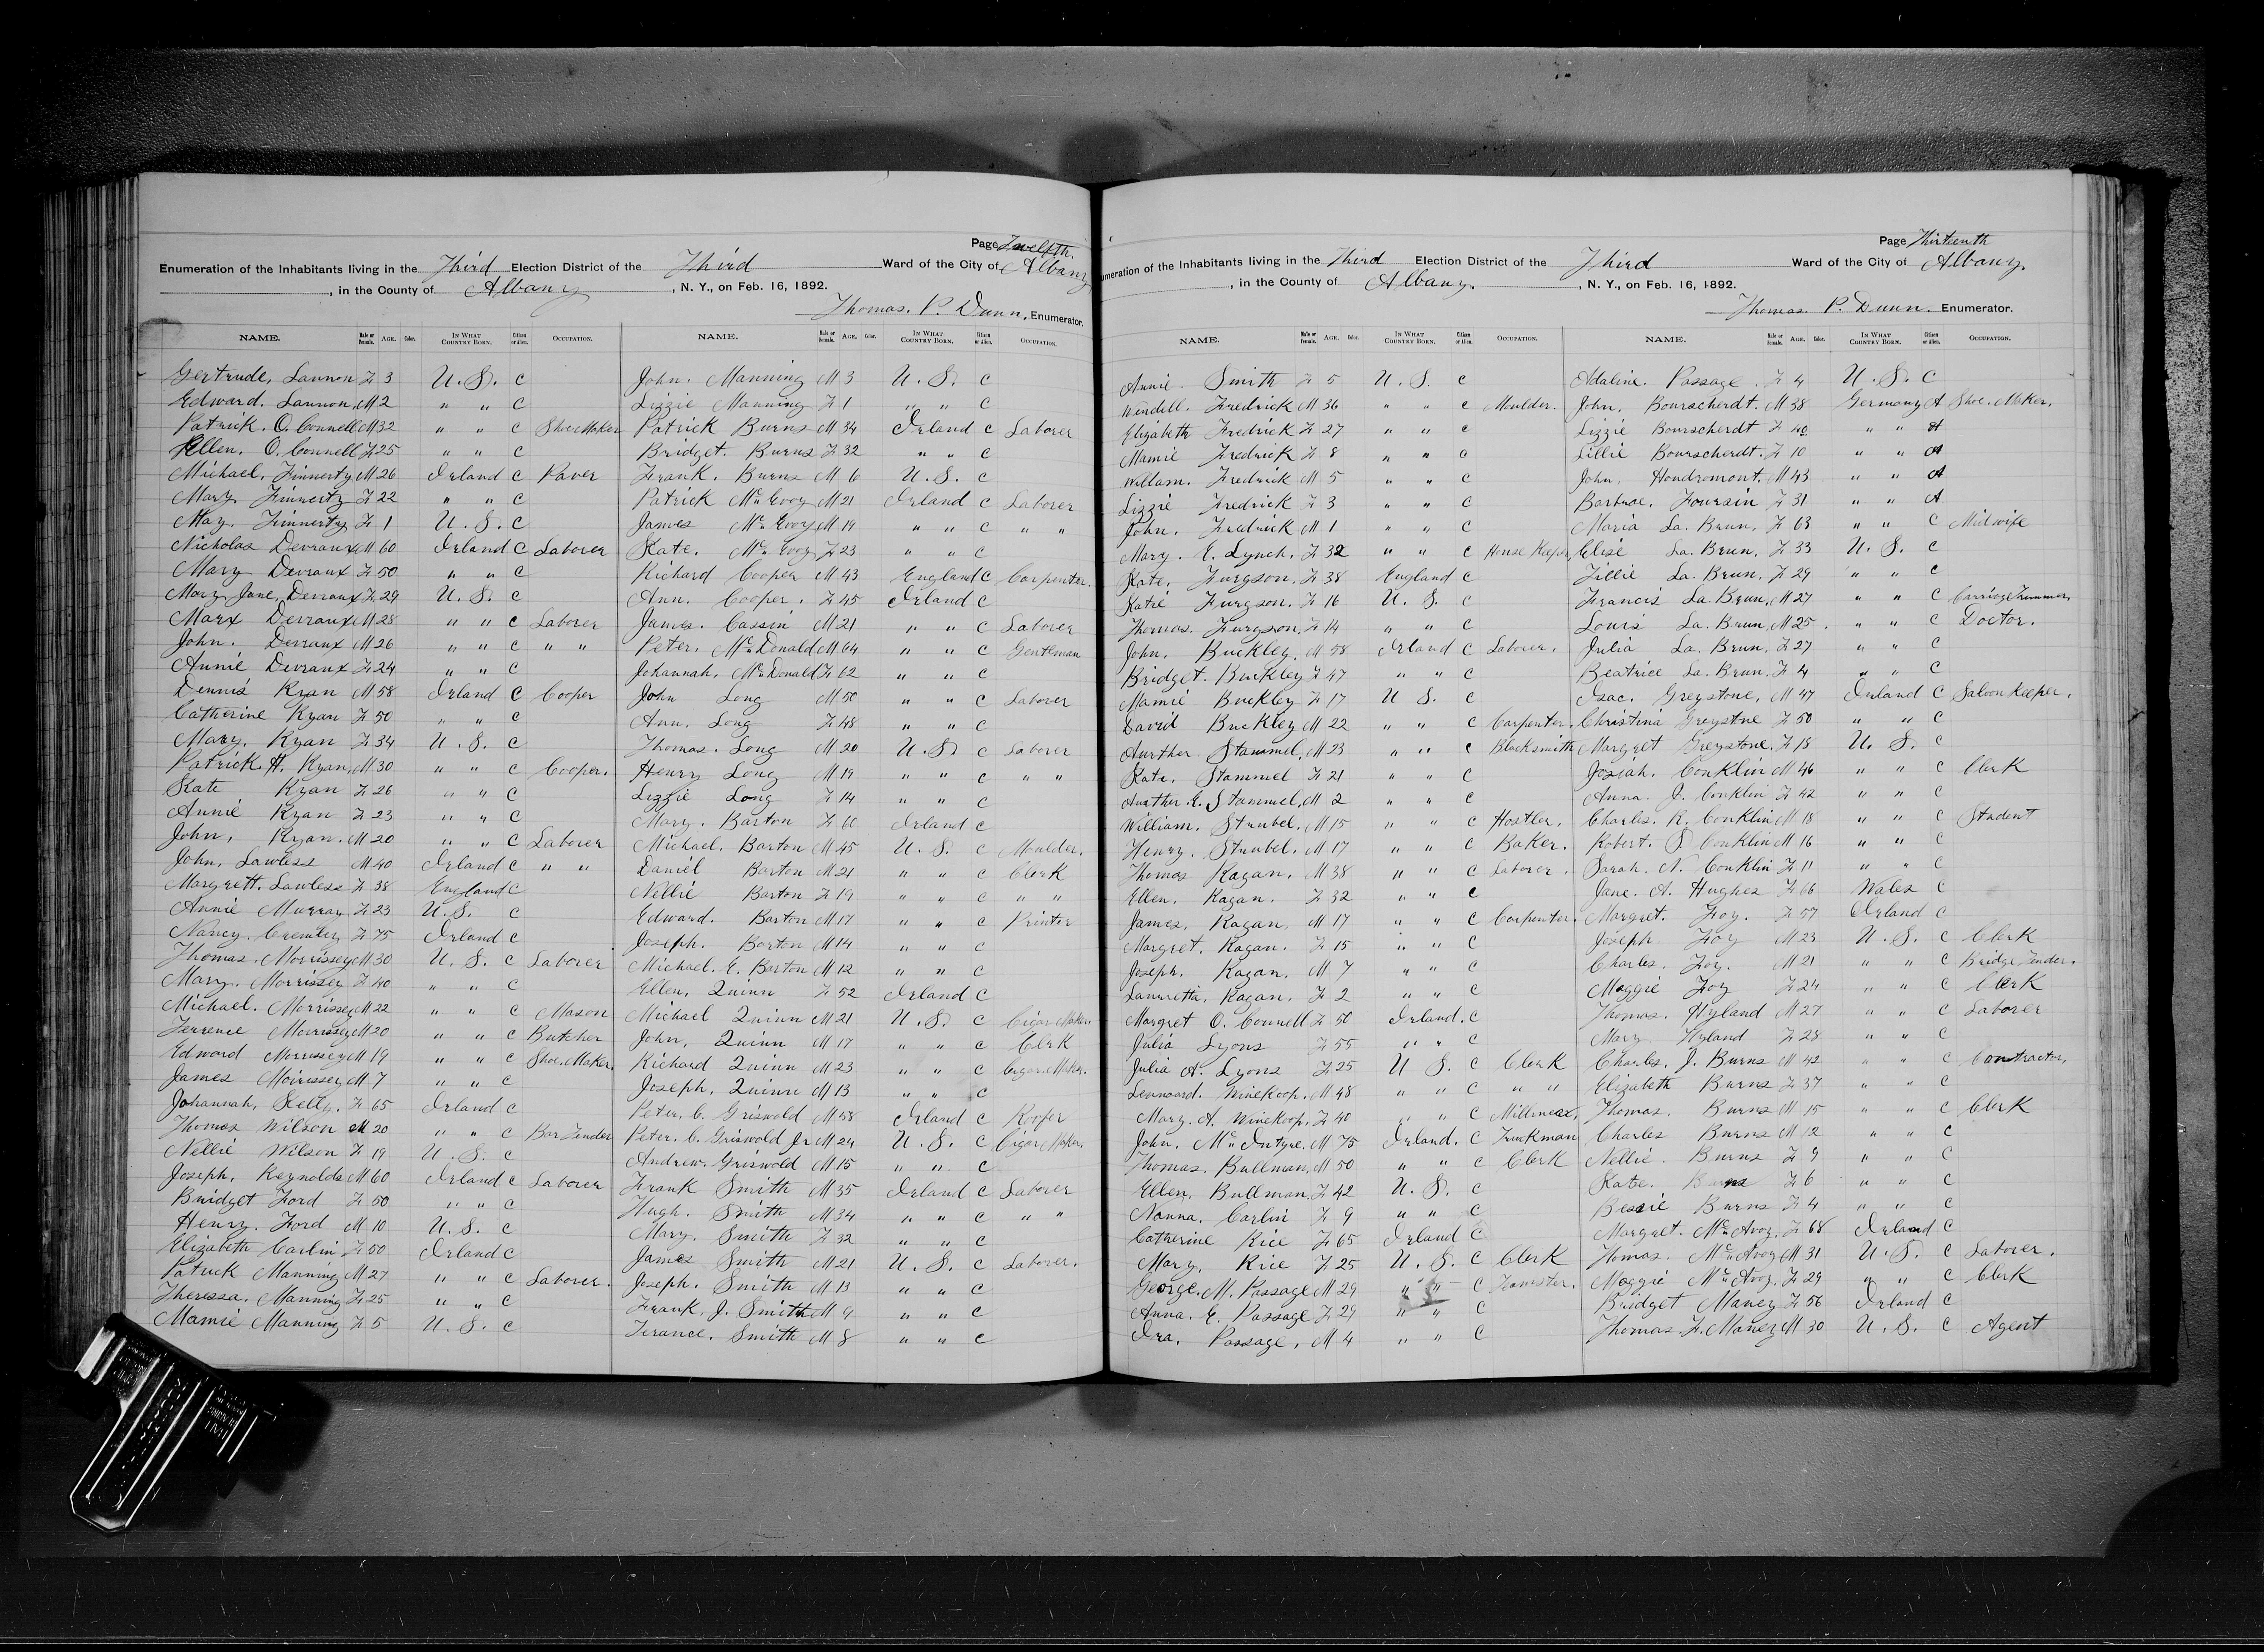 Page Twelfth.
Enumeration of the Inhabitants living in the Third Election District of the Third Ward of the City of Albany
, in the County of Albany , N. Y., on Feb. 16, 1892.
Thomas. P. Dunn, Enumerator.
NAME. Male or Female. AGE. Color. IN WHAT COUNTRY BORN. Citizen or Alien. OCCUPATION.
Gertrude, Lannon F 3 U. S. C
Edward. Lannon, M 2 " " C
Patrick. O. Connell M 32 " " C Shoe Maker
Ellen. O. Connell F 25 " " C
Michael, Finnerty M 26 Irland C Paver
Mary Finnerty F 22 " " C
May. Finnerty F 1 U. S. C
Nicholas Devraux M 60 Irland C Laborer
Mary Devraux F 50 " " C
Mary Jane, Devraux F 29 U. S. C
Marx Devraux M 28 " " C Laborer
John. Devraux M 26 " " C " "
Annie Devraux F 24 " " C
Dennis Ryan M 58 Irland C Cooper
Catherine Ryan F 50 " " C
Mary. Ryan F 34 U. S. C
Patrick. H. Ryan, M 30 " " C Cooper.
Kate Ryan F 26 " " C
Annie Ryan F 23 " " C
John, Ryan. M 20 " " C Laborer
John, Lawless M 40 Irland C " "
Margrett. Lawless F 38 England C
Annie Murray F 23 U. S. C
Nancy. F 75 Irland C
Thomas. Morrissey M 30 U. S. C Laborer
Mary. Morrissey F 40 " " C
Michael. Morrissey M 22 " " C Mason
Terrence Morrissey M 20 " " C Butcher
Edward Morrissey M 19 " " C Shoe. Maker
James Morrissey M 7 " " C
Johannah, Kelly. F 65 Irland C
Thomas Wilson M 20 " " C Bar Tender
Nellie Wilson F 19 U. S. C
Joseph, Reynolds M 60 Irland C Laborer
Bridget Ford F 50 " " C
Henry. Ford M 10 U. S. C
Elizabeth Carlin F 50 Irland C
Patrick Manning M 27 " " C Laborer.
Theressa. Manning F 25 " " C
Mamie Manning F 5 U. S. C
NAME. Male or Female. AGE. Color. IN WHAT COUNTRY BORN. Citizen or Alien. OCCUPATION.
John. Manning M 3 U. S. C
Lizzie Manning F 1 " " C
Patrick Burns M 34 Irland C Laborer
Bridget. Burns F 32 " " C
Frank. Burns M 6 U. S. C
Patrick Mc Evoy M 21 Irland C Laborer
James Mc Evoy M 19 " " C " "
Kate. Mc Evoy F 23 " " C
Richard Cooper M 43 England C Carpenter.
Ann. Cooper. F 45 Irland C
James. Cassin M 21 " " C Laborer
Peter. Mc Donald M 64 " " C Gentlman
Johannah, Mc Donald F 62 " " C
John Long M 50 " " C Laborer
Ann. Long F 48 " " C
Thomas. Long M 20 U. S. C Laborer
Henry Long M 19 " " C " "
Lizzie Long F 14 " " C
Mary. Barton F 66 Irland C
Michael. Barton M 45 U. S. C Moulder.
Daniel Barton M 21 " " C Clerk
Nellie Barton F 19 " " C " "
Edward. Barton M 17 " " C Printer
Joseph. Barton M 14 " " C
Michael. E. Barton M 12 " " C
Ellen, Quinn F 52 Irland C
Michael Quinn M 21 U. S. C Cigar Maker
John, Quinn M 17 " " C Clerk
Richard Quinn M 23 " " C Cigar. Maker.
Joseph, Quinn M 13 " " C
Peter, C. Griswold M 58 Irland C Roofer
Peter. C. Griswold Jr M 24 U. S. C Cigar Maker.
Andrew. Griswold M 15 " " C
Frank Smith M 35 Irland C Laborer
Hugh. Smith M 34 " " C " "
Mary. Smith F 32 " " C
James Smith M 21 U. S. C Laborer.
Joseph. Smith M 13 " " C
Frank. J. Smith M 9 " " C
Terance. Smith M 8 " " C
Page Thirteenth
umeration of the Inhabitants living in the Third Election District of the Third Ward of the City of Albany.
, in the County of Albany. , N. Y., on Feb. 16, 1892.
Thomas P. Dunn. Enumerator.
NAME. Male or Female. AGE. Color. IN WHAT COUNTRY BORN. Citizen or Alien. OCCUPATION.
Annie. Smith F 5 U. S. C
Windell. Fredrick M 36 " " C Moulder.
Elizabeth Fredrick F 27 " " C
Mamie Fredrick F 8 " " C
Willam. Fredrick M 5 " " C
Lizzie Fredrick F 3 " " C
John. Fredrick M 1 " " C
Mary. E. Lynch. F 32 " " C House Keeper
Kate. Furgson. F 38 England C
Katie Furgson. F 16 U. S. C
Thomas. Furgson, F 14 " " C
John, Buckley, M 58 Irland C Laborer.
Bridget. Buckley F 47 " " C
Mamie Buckley F 17 U S. C
David Buckley M 22 " " C Carpenter.
Aurther Stammel, M 23 " " C Blacksmith
Kate, Stammel F 21 " " C
Aurther. E. Stammel, M 2 " " C
William. Strubel. M 15 " " C Hostler.
Henry. Strubel. M 17 " " C Baker.
Thomas Ragan. M 38 " " C Laborer.
Ellen. Ragan. F 32 " " C
James, Ragan, M 17 " " C Carpenter.
Margret. Ragan. F 15 " " C
Joseph, Ragan, M 7 " " C
Lauretta, Ragan. F 2 " " C
Margret O. Connell F 50 Irland. C
Julia Lyons F 55 " " C
Julia A. Lyons F 25 U S. C Clerk
Lennoard. Winekoop. M 48 " " C " "
Mary. A. Winekoop. F 40 " " C
John. Mc Intyre. M 75 Irland. C Truckman
Thomas. Bullman, M 50 " " C Clerk
Ellen, Bullman, F 42 U. S. C
Nanna. Carlin F 9 " " C
Catherine Rice F 65 Irland C
Mary. Rice F 25 U. S. C Clerk
George. M. Passage M 29 " " C Teamster.
Anna. E. Passage F 29 " " C
Ira, Passage, M 4 " " C
NAME. Male or Female. AGE. Color. IN WHAT COUNTRY BORN. Citizen or Alien. OCCUPATION.
Adaline. Passage. F 4 U. S. C
John, Bourscherdt. M 38 Germany A Shoe. Maker.
Lizzie Bourscherdt F 40 " " A
Lillie Bourscherdt. F 10 " " A
John, Hondromont. M 43 " " A
Foursin F 31 " " A
Maria La. Brun. F 63 " " C Midwife
Elise La. Brun. F 33 U. S. C
Tillie La. Brun. F 29 " " C
Francis La. Brun, M 27 " " C Carriage Trimmer
Louis La. Brun, M 25. " " C Doctor.
Julia La. Brun. F 27 " " C
Beatrice La. Brun. F 4 " " C
Isac. Greystone, M 47 Irland C Saloon Keeper.
Christina Greystne F 50 " " C
Margret Greystone. F 18 U. S. C
Josiah. Conklin M 46 " " C Clerk
Anna. J. Conklin F 42 " " C
Charles. R. Conklin M 18 " " C Student
Robert. S Conklin M 16 " " C
Sarah. N. Conklin F 11 " " C
Jane. A. Hughes F 66 Wales C
Margret. Foy. F 57 Irland C
Joseph Foy M 23 U. S. C Clerk
Charles. Foy. M 21 " " C Bridge Tender.
Maggie Foy F 24 " " C Clerk
Thomas. Hyland M 27 " " C Laborer
Mary Hyland F 28 " " C
Charles. J. Burns M 42 " " C Contractor,
Elizabeth Burns F 37 " " C
Thomas. Burns M 15 " " C Clerk
Charles Burns M 12 " " C
Nellie. Burns F 9 " " C
Kate. Burns F 6 " " C
Bessie Burns F 4 " " C
Margret. Mc Avoy. F 68 Irland C
Thomas. Mc Avoy M 31 U. S. C Laborer.
Maggie Mc Avoy. F 29 " " C Clerk
Bridget Maney F 56 Irland C
Thomas. F. Maney M 30 U. S. C Agent